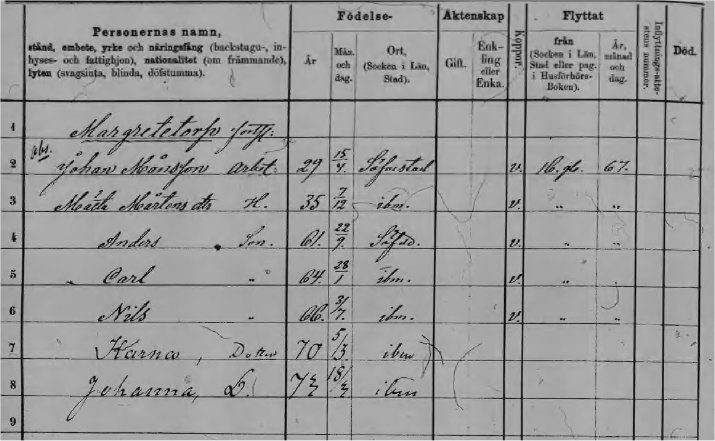 Personernas namn,
stånd, embete, yrke och näringsfång (backstugu-, in-
hyses- och fattighjon), nationalitet (om främmande),
lyten (svagsinta, blinda, döfstumma).
Födelse-
År
Mån. och dag.
Ort, (Socken i Län, Stad).
Äktenskap
Gift.
Enk- ling eller Enka.
Koppor.
Flyttat
från (Socken i Län, Stad eller pag. i Husförhörs- Boken).
År, månad och dag.
Inflyttnings-atte- stens nummer.
Död.
1 Margretetorp fortf:
2 abs. Johan Månsson Arbet. 29 15/4. v. 16. 67.
3 Mårtens dtr H. 35 7/12 ibm. v. „ „
4 Anders Son. 61. 22/9. v. „ „
5 Carl „ 64. 28/1 ibm. v. „ „
6 Nils „ 66. 31/7. ibm. v. „ „
7 Karna, Dotter 70 5/3 ibm
8 Johanna, D. ibm
9